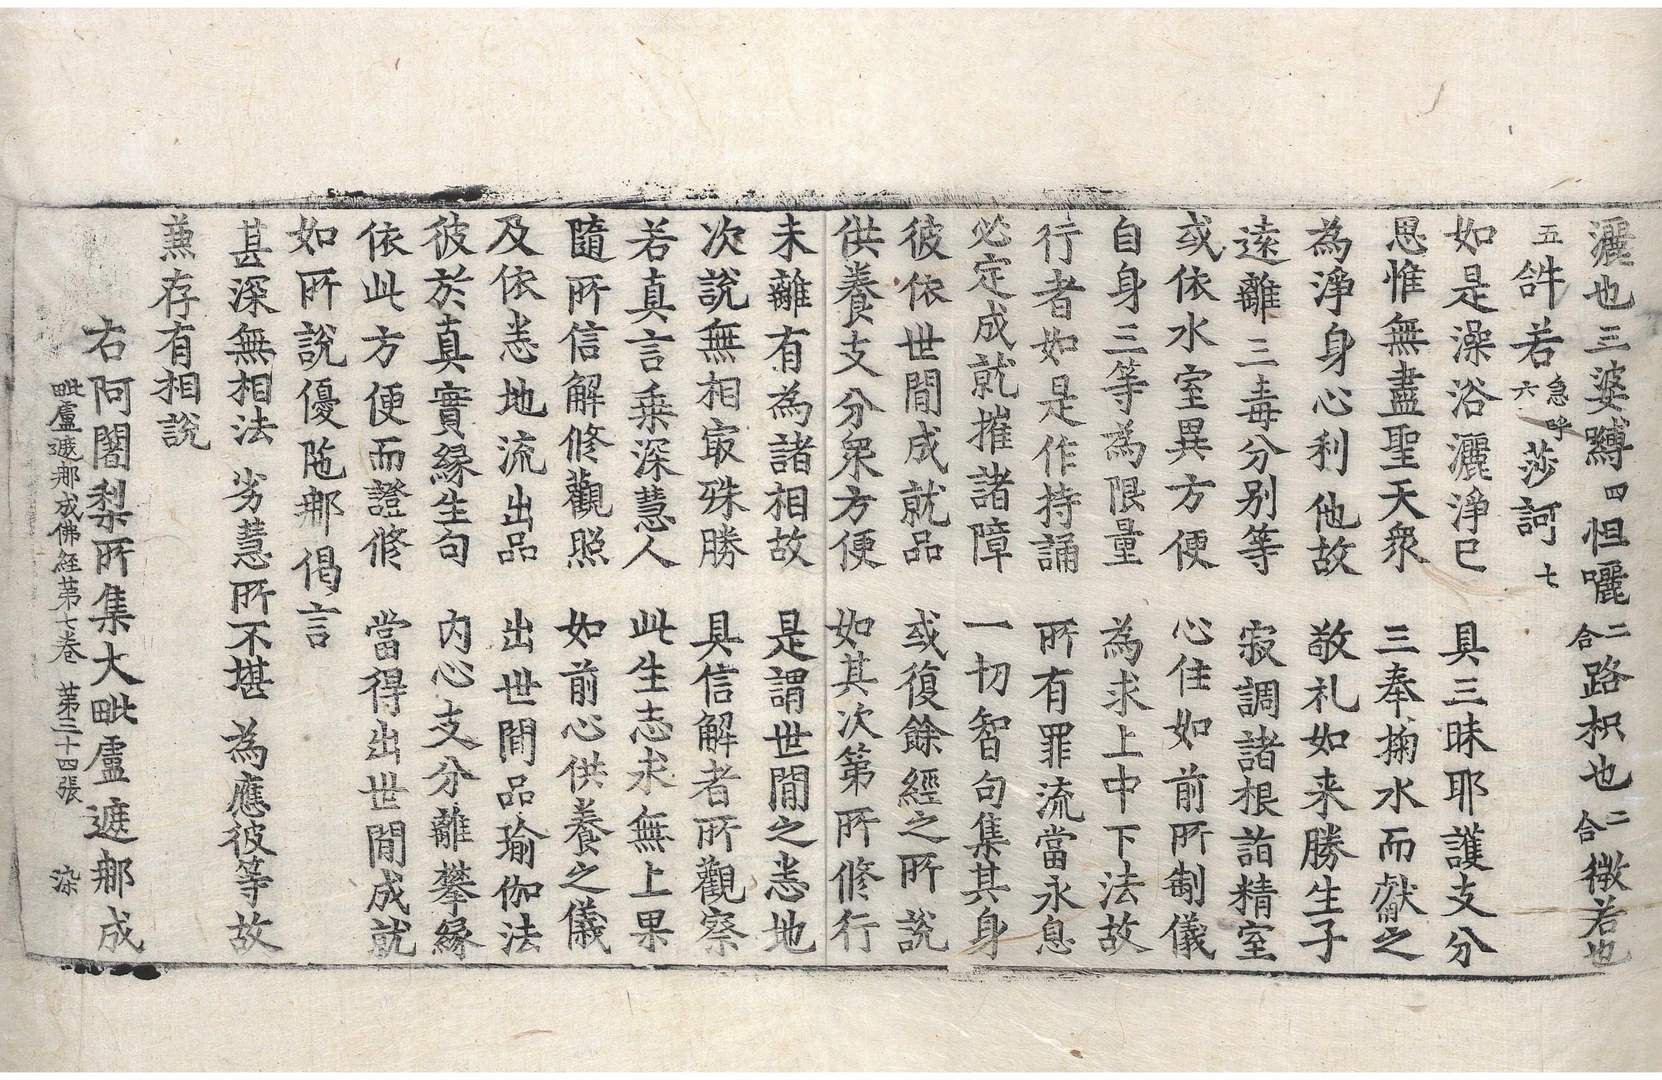 灑也三婆嚩四怛囇二合路枳也二合微若也
五𤙖若急呼六莎訶七
如是澡浴灑淨已　具三昧耶護支分
思惟無盡聖天衆　三奉掬水而獻之
為淨身心利他故　敬礼如来勝生子
遠離三毒分別等　寂調諸根詣精室
或依水室異方便　心住如前所制儀
自身三等為限量　為求上中下法故
行者如是作持誦　所有罪流當永息
必定成就摧諸障　一切智句集其身
彼依世間成就品　或復餘經之所說
供養支分衆方便　如其次第所修行
未離有為諸相故　是謂世間之悉地
次說無相㝡殊勝　具信解者所觀察
若真言乗深慧人　此生志求無上果
隨所信解修觀照　如前心供養之儀
及依悉地流出品　出世間品瑜伽法
彼於真實緣生句　内心支分離攀緣
依此方便而證修　當得出世間成就
如所說優陁那偈言
甚深無相法　劣慧所不堪　為應彼等故
兼存有相說
右阿闍梨所集大毗盧遮那成
毗盧遮那成佛經第七卷　第三十四張　染